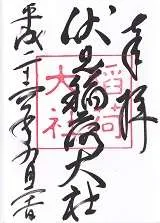 奉拝
伏見稲荷大社
稲荷
大社
平成二十六年九月二十日